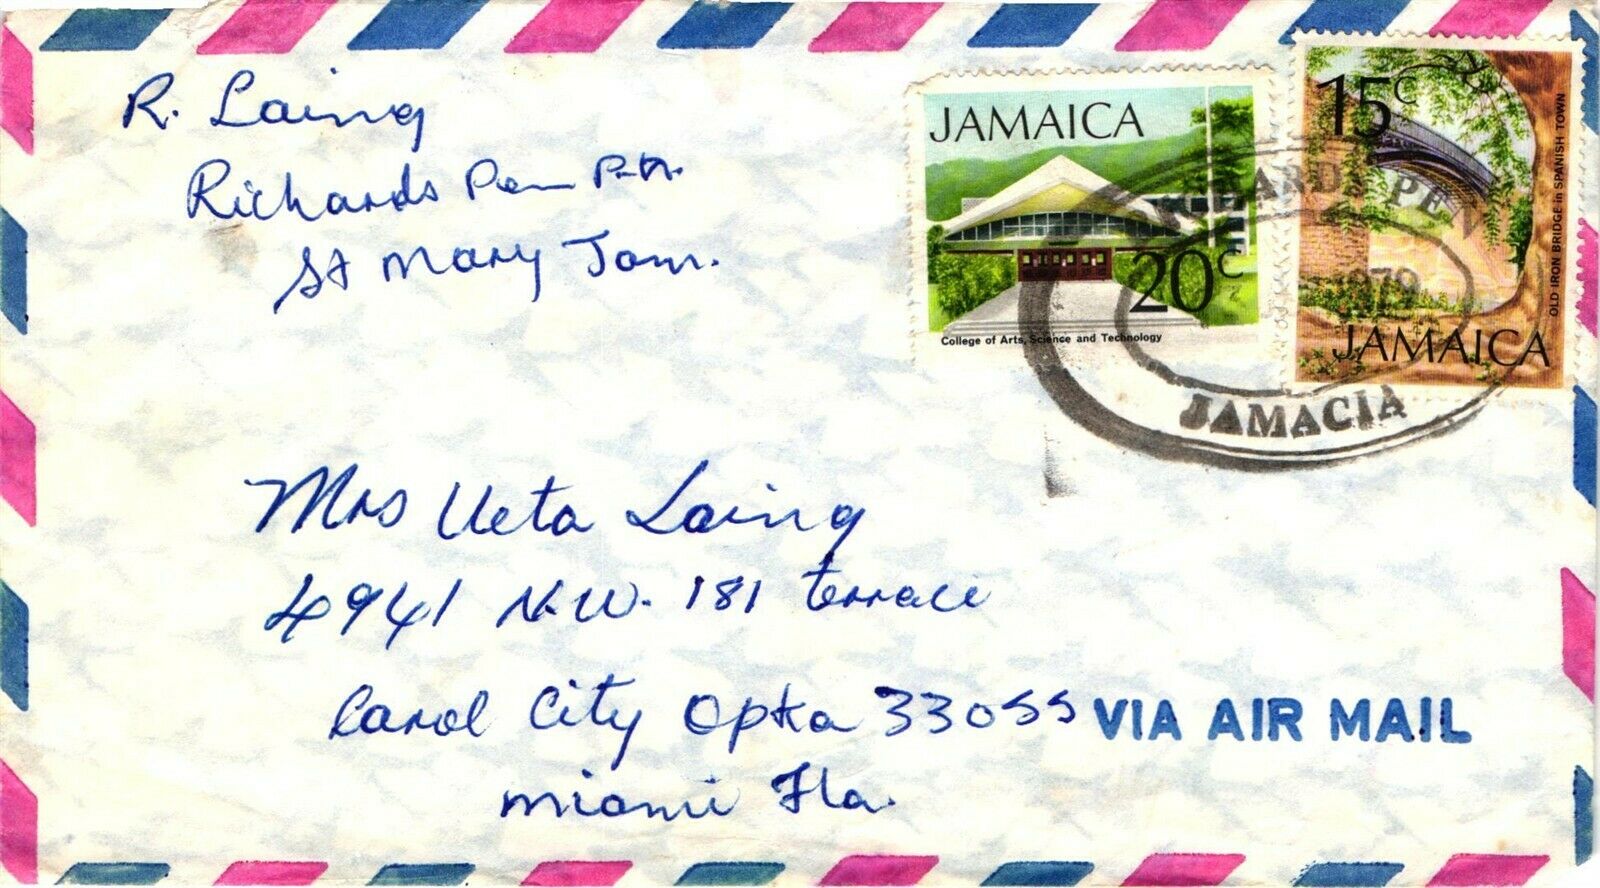 R. Laing
Richards Pen P.A.
St Mary Jam.
JAMAICA
20c
College of Arts, Science and Technology
15c
OLD IRON BRIDGE in SPANISH TOWN
JAMAICA
ARDS PEN
1979
JAMACIA
Mrs Ueta Laing
4941 N.W. 181 terrace
Carol City Opka 33055
VIA AIR MAIL
Miami Fla.